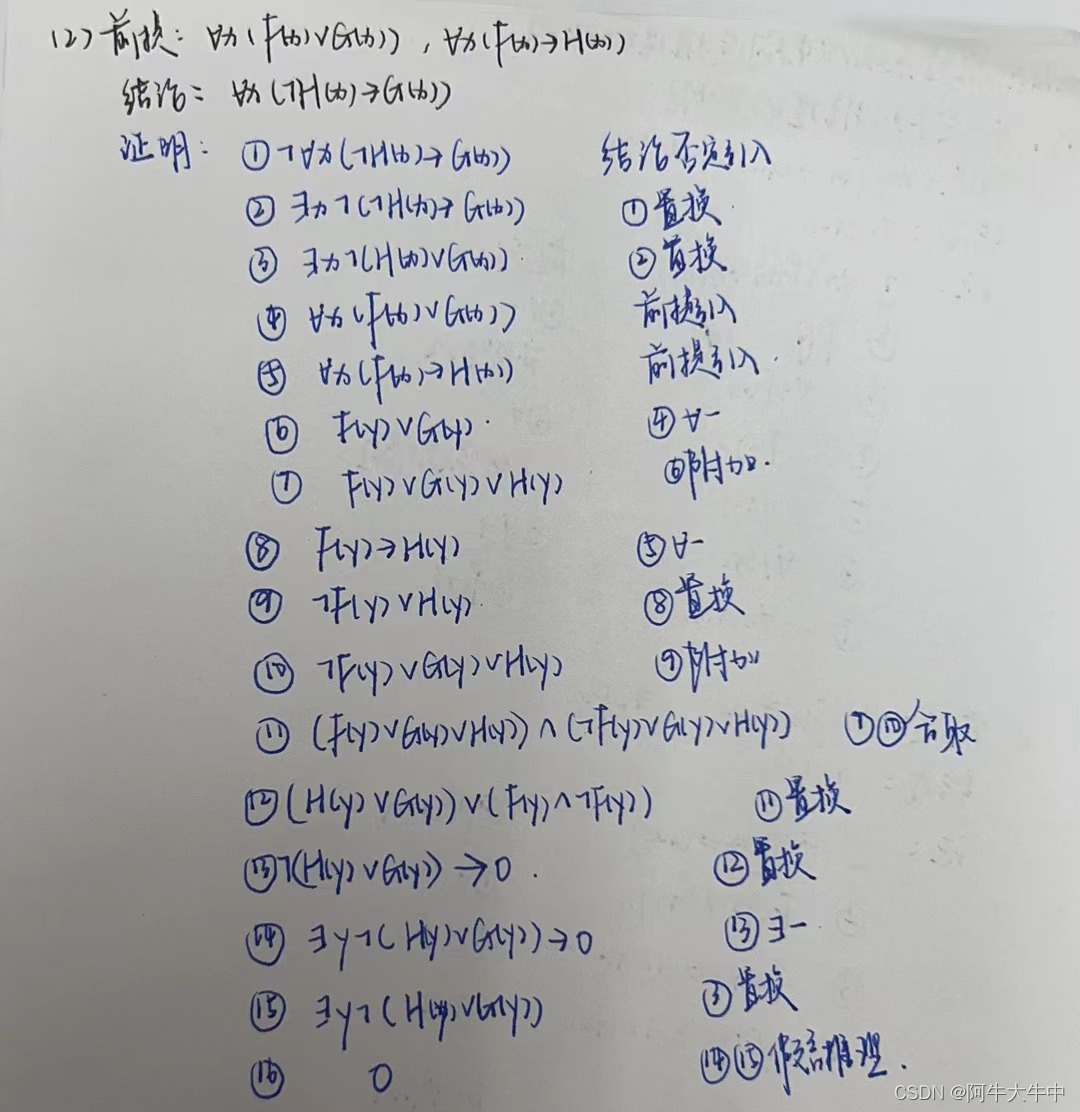 (2) 前提: ∀x(F(x)∨G(x)), ∀x(F(x)→H(x))
结论: ∀x(¬H(x)→G(x))
证明: ① ¬∀x(¬H(x)→G(x)) 结论否定引入
② ∃x¬(¬H(x)→G(x)) ①置换
③ ∃x¬(H(x)∨G(x)) ②置换
④ ∀x(F(x)∨G(x)) 前提引入
⑤ ∀x(F(x)→H(x)) 前提引入
⑥ F(y)∨G(y) ④∀-
⑦ F(y)∨G(y)∨H(y) ⑥附加
⑧ F(y)→H(y) ⑤∀-
⑨ ¬F(y)∨H(y) ⑧置换
⑩ ¬F(y)∨G(y)∨H(y) ⑨附加
⑪ (F(y)∨G(y)∨H(y))∧(¬F(y)∨G(y)∨H(y)) ⑦⑩合取
⑫ (H(y)∨G(y))∨(F(y)∧¬F(y)) ⑪置换
⑬ ¬(H(y)∨G(y))→0 ⑫置换
⑭ ∃y¬(H(y)∨G(y))→0 ⑬∃-
⑮ ∃y¬(H(y)∨G(y)) ③置换
⑯ 0 ⑭⑮假言推理
CSDN @阿牛大牛中